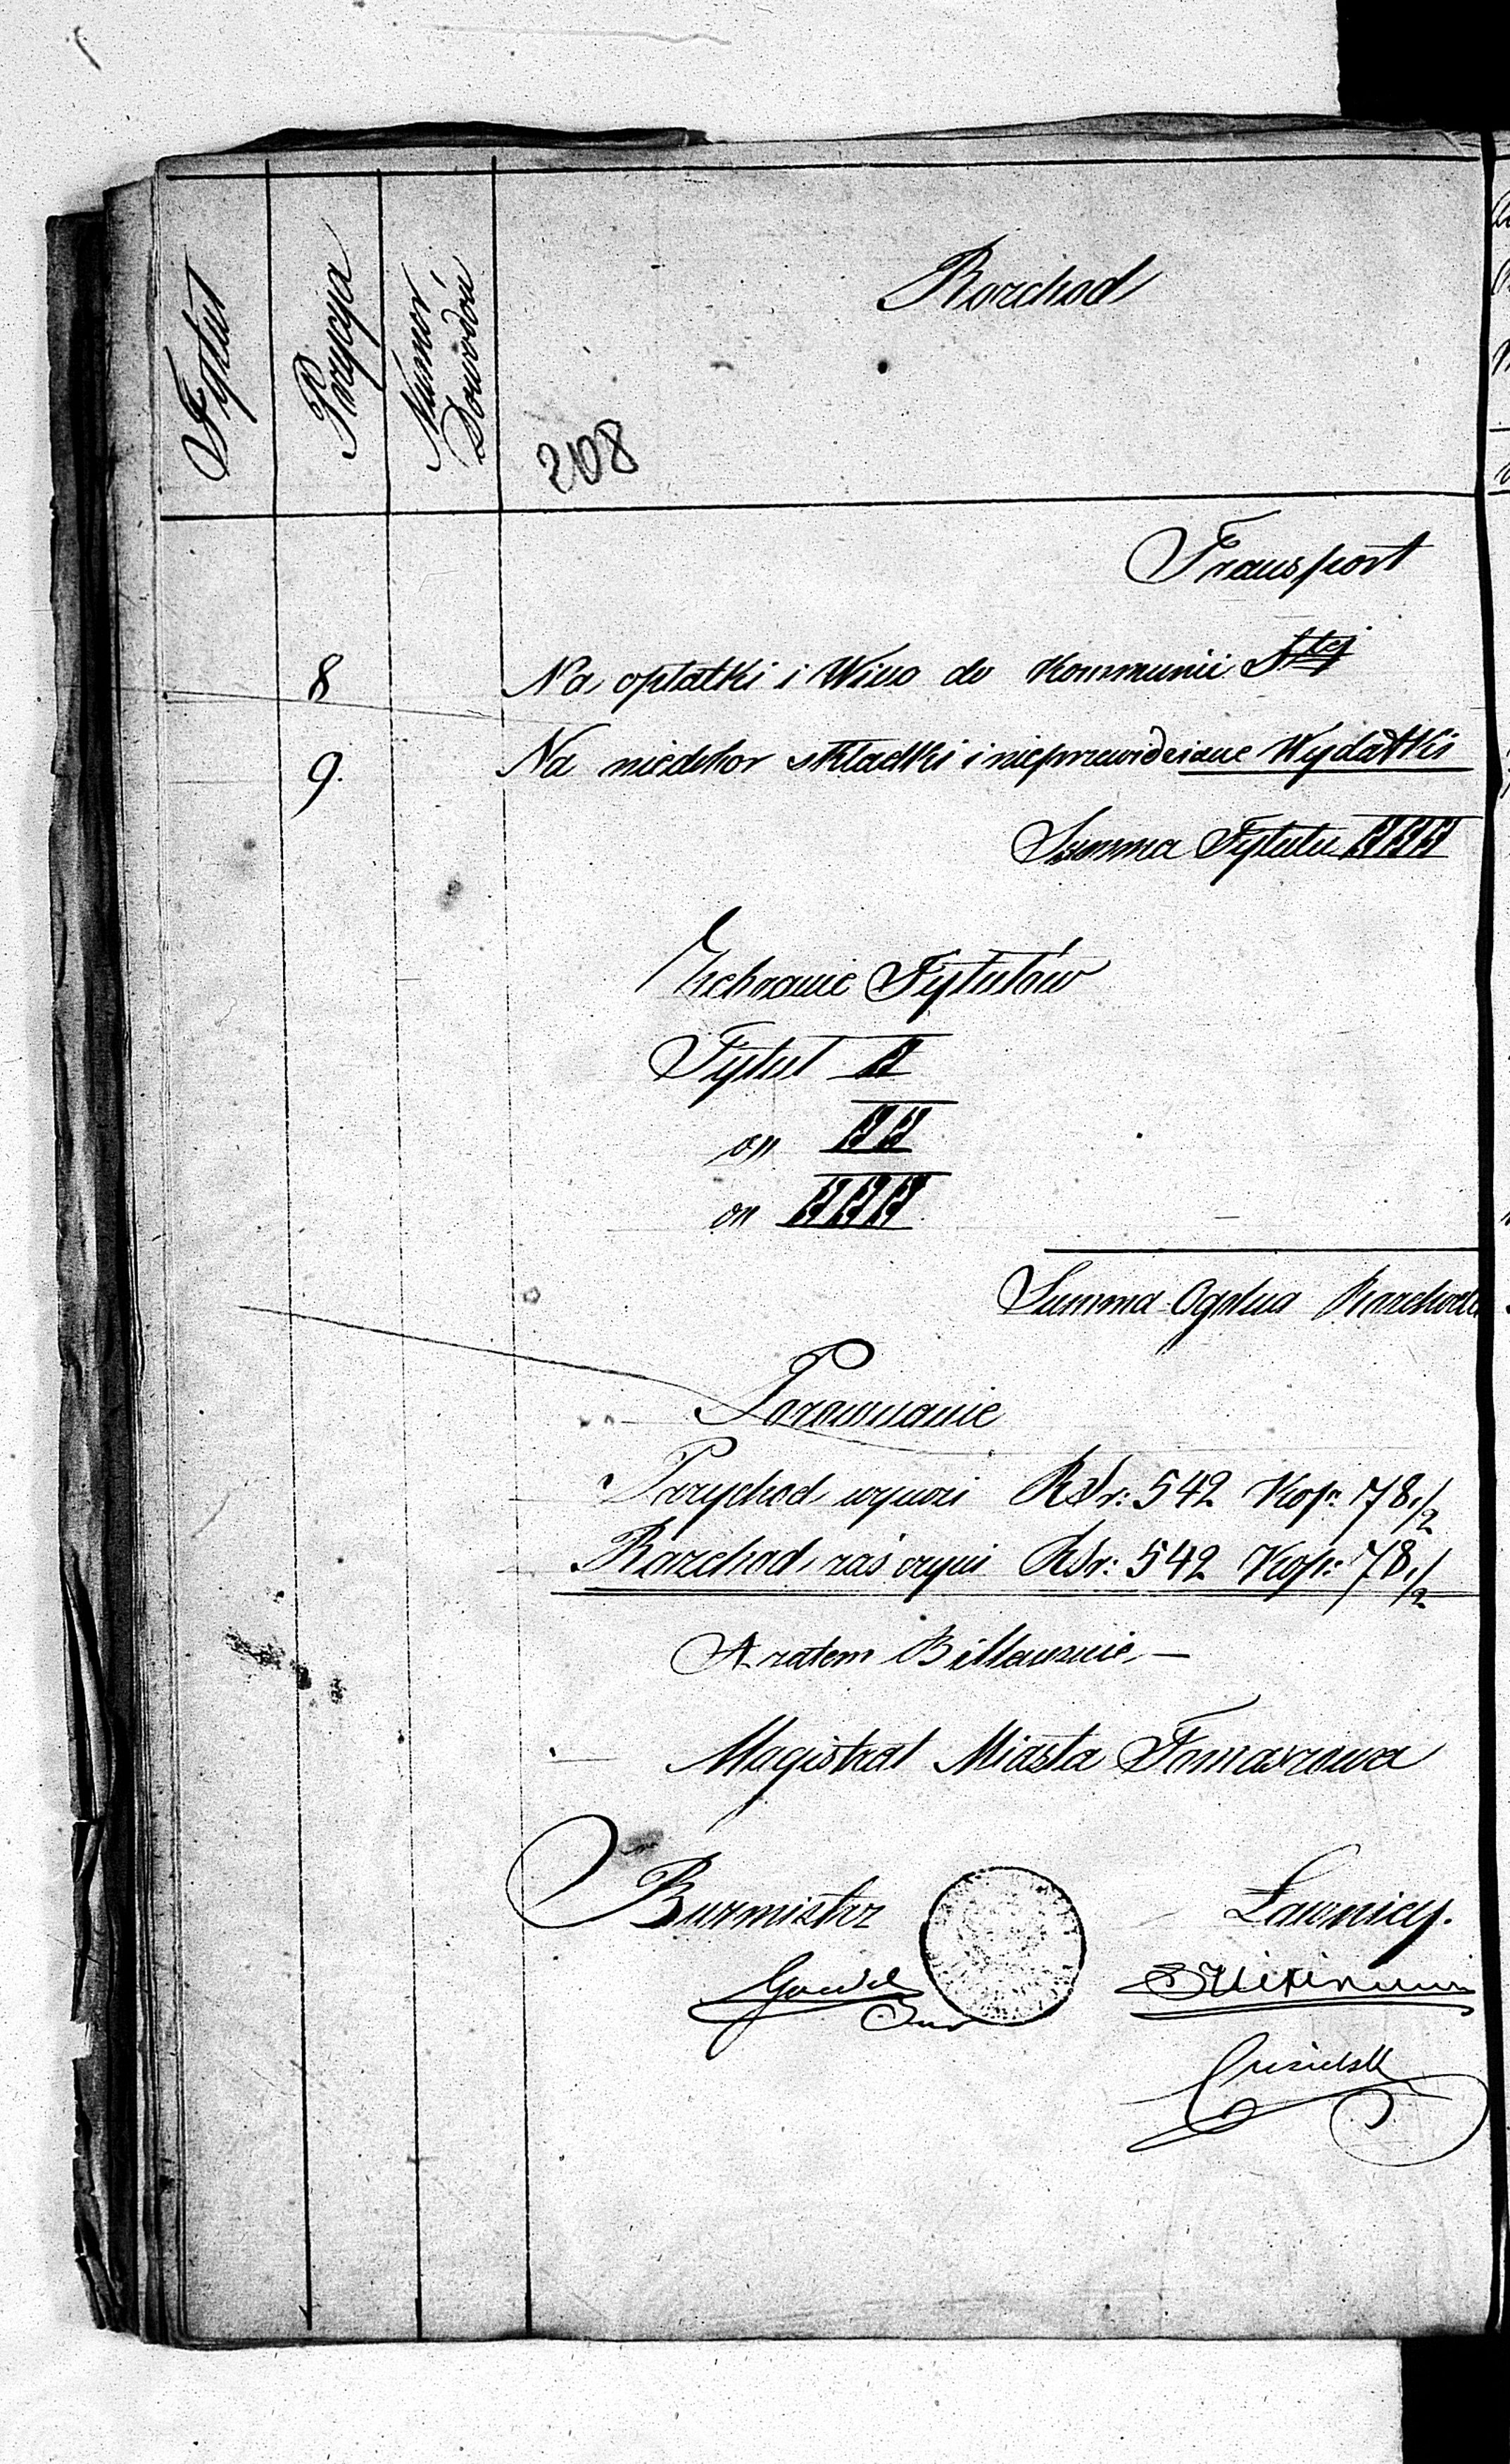 Tytuł
Pozycyja
Numer
Dowodów
Rozchod
208
Transport
8 Na opłatki i Wino do Kommunii Stej
9. Na niedobor składki i nieprzewidziane Wydatki
Summa Tytułu III
Zebranie Tytułów
Tytuł I
on II
on III
Summa Ogólna Rozchodu
Porownanie
Przychod wynosi RSr: 542 Kop: 78 1/2
Rozchod zaś czyni RSr: 542 Kop: 78 1/2
A zatem Billansuie
Magistrat Miasta Tomaszowa
Burmistrz Ławnicy.